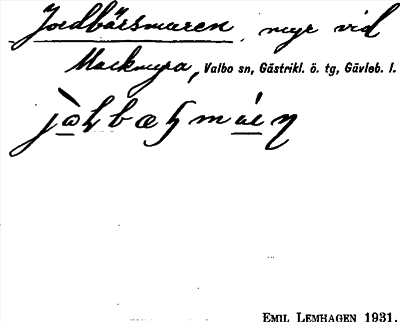 Jordbärsmuren, myr vid
Mackmyra, Valbo sn, Gästrikl. ö. tg, Gävleb. l.
EMIL LEMHAGEN 1931.